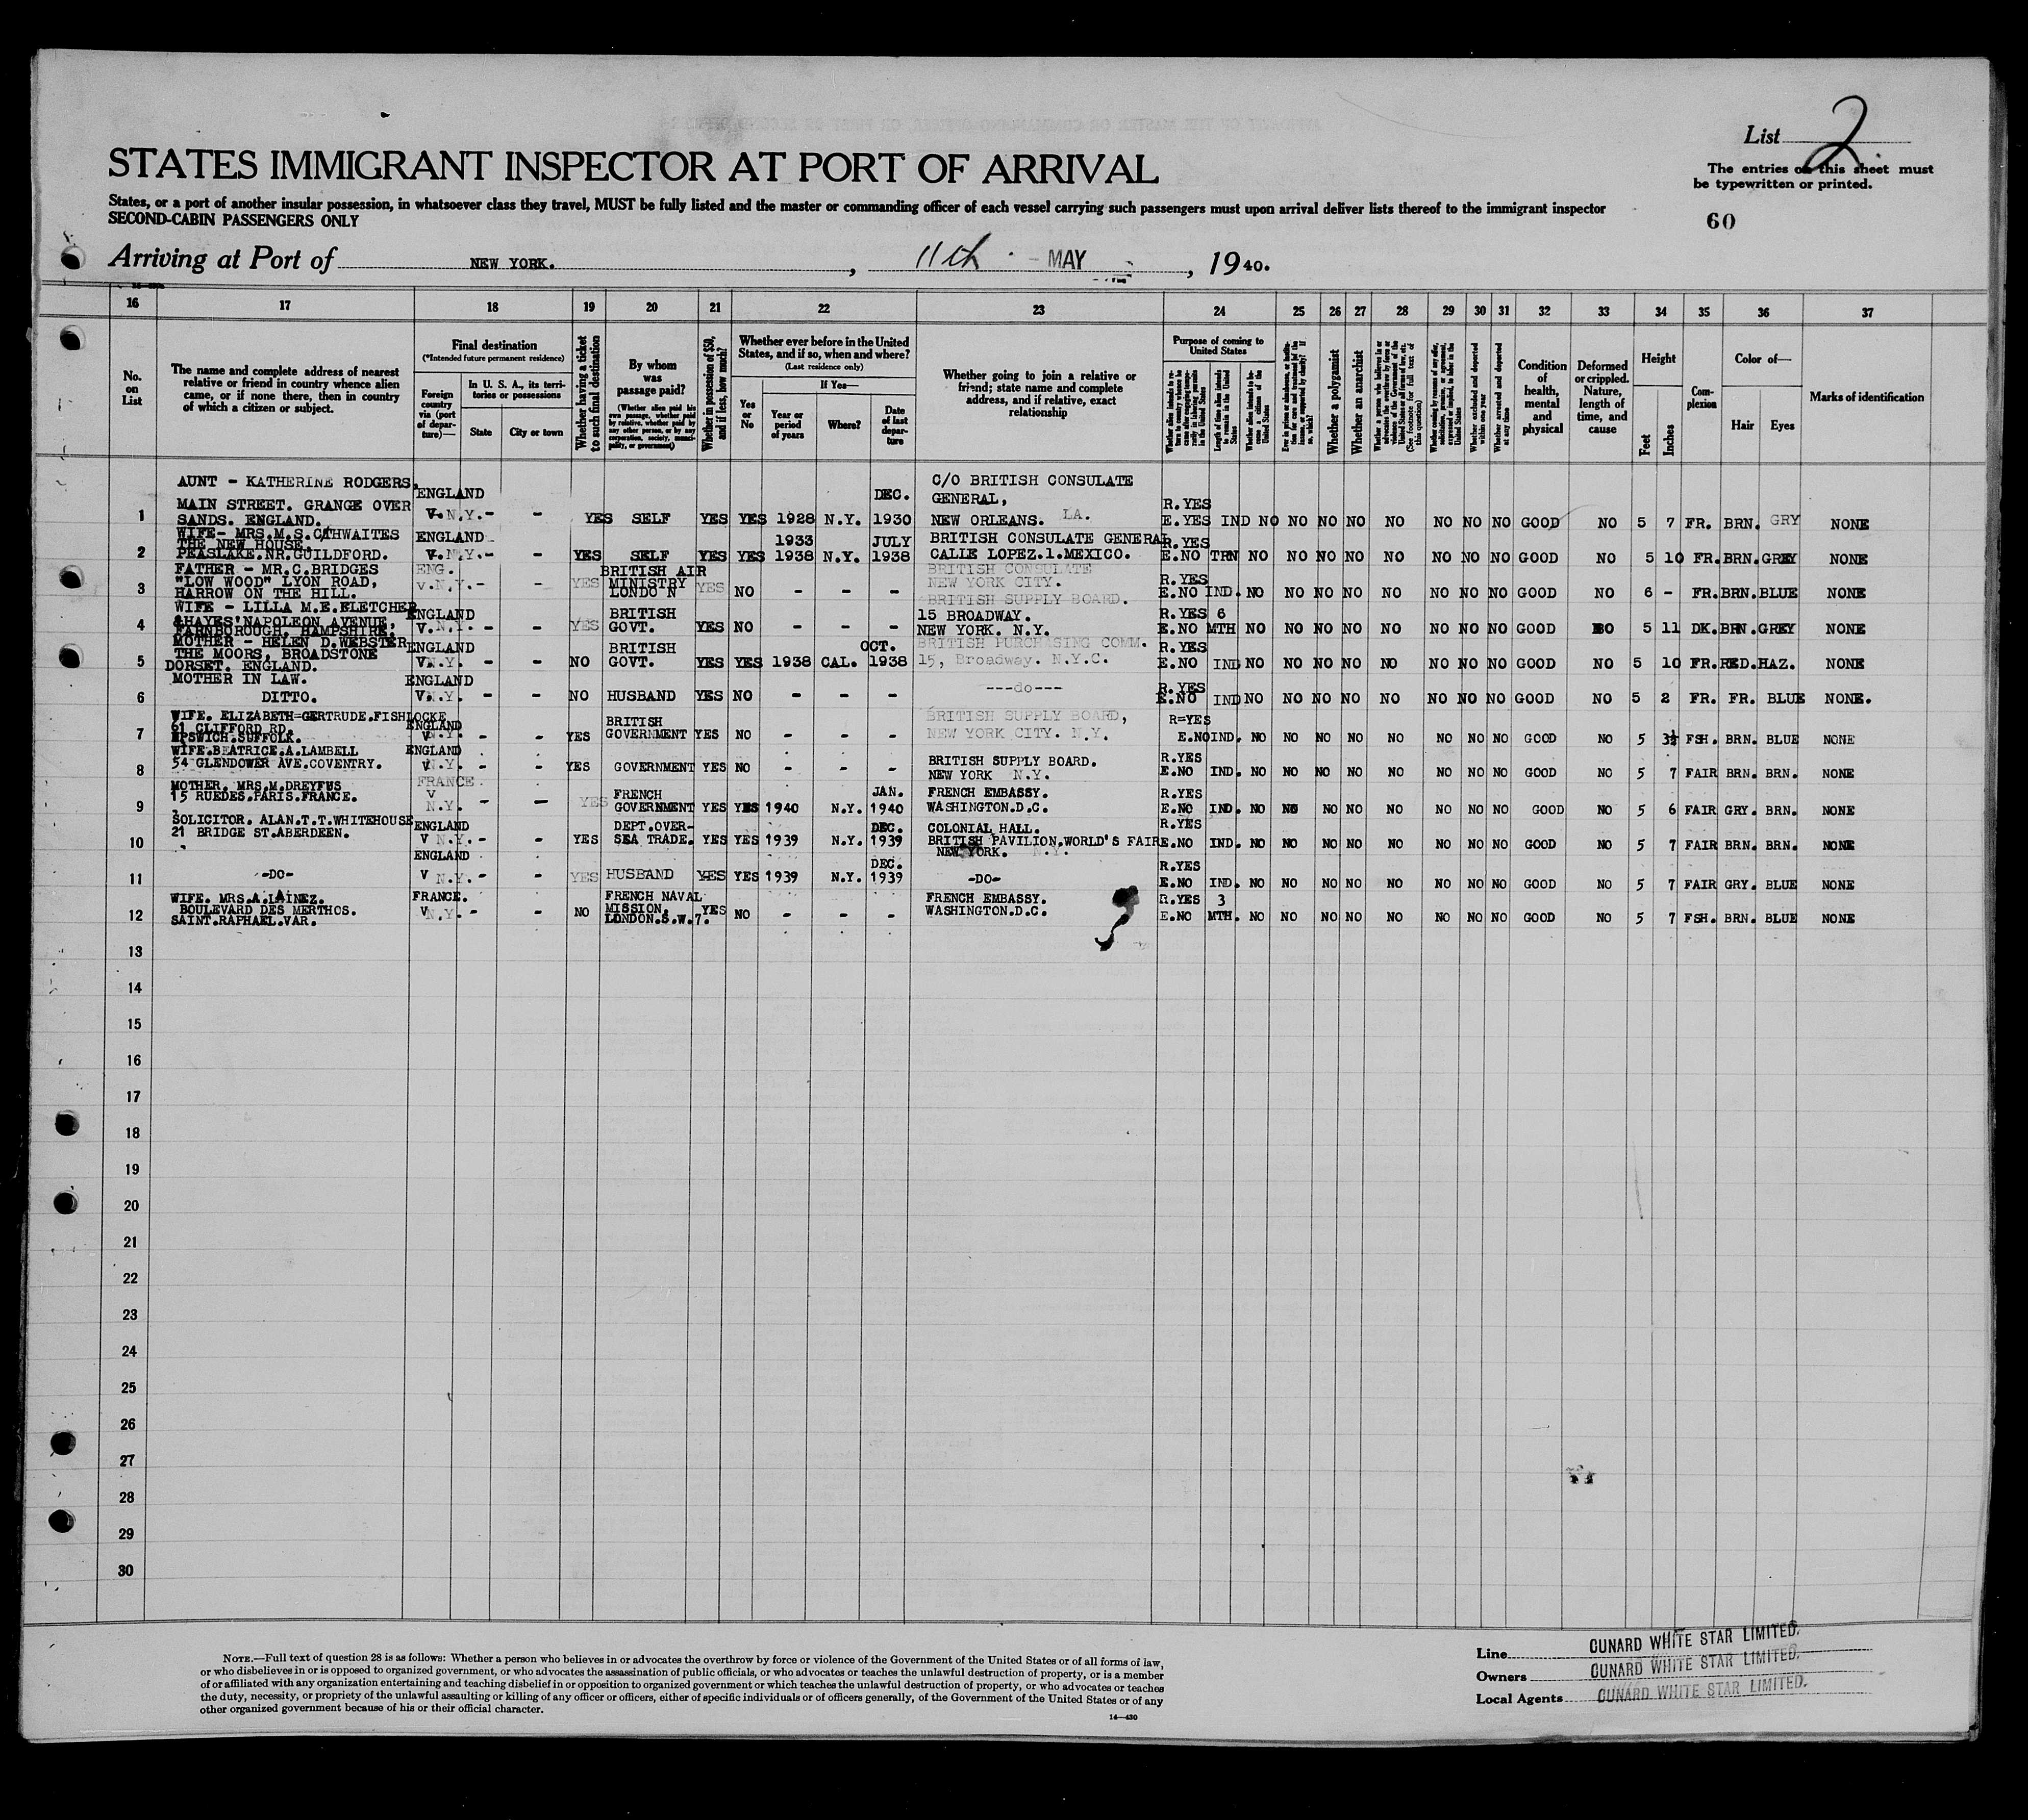 List 2
STATES IMMIGRANT INSPECTOR AT PORT OF ARRIVAL
The entries on this sheet must
be typewritten or printed.
States, or a port of another insular possession, in whatsoever class they travel, MUST be fully listed and the master or commanding officer of each vessel carrying such passengers must upon arrival deliver lists thereof to the immigrant inspector
SECOND-CABIN PASSENGERS ONLY
60
Arriving at Port of NEW YORK. , 11th - MAY , 1940.
16 17 18 19 20 21 22 23 24 25 26 27 28 29 30 31 32 33 34 35 36 37
No. on List
The name and complete address of nearest relative or friend in country whence alien came, or if none there, then in country of which a citizen or subject.
Final destination
(*Intended future permanent residence)
Foreign country via (port of departure)—
In U. S. A., its territories or possessions
State
City or town
Whether having a ticket to such final destination
By whom was passage paid?
(Whether alien paid his own passage, whether paid by relative, whether paid by any other person, or by any corporation, society, municipality, or government)
Whether in possession of $50, and if less, how much?
Whether ever before in the United States, and if so, when and where?
(Last residence only)
Yes or No
If Yes—
Year or period of years
Where?
Date of last departure
Whether going to join a relative or friend; state name and complete address, and if relative, exact relationship
Purpose of coming to United States
Whether a polygamist
Whether an anarchist
Whether excluded and deported within one year
Whether arrested and deported at any time
Condition of health, mental and physical
Deformed or crippled. Nature, length of time, and cause
Height
Feet
Inches
Complexion
Color of—
Hair
Eyes
Marks of identification
1 AUNT - KATHERINE RODGERS, MAIN STREET. GRANGE OVER SANDS. ENGLAND. ENGLAND V.N.Y.- - YES SELF YES YES 1928 N.Y. DEC. 1930 C/O BRITISH CONSULATE GENERAL, NEW ORLEANS. LA. R.YES E.YES IND NO NO NO NO NO NO NO NO GOOD NO 5 7 FR. BRN. GRY NONE
2 WIFE- MRS.M.S.CATHWAITES THE NEW HOUSE. PEASLAKE.NR.GUILDFORD. ENGLAND V.N.Y.- - YES SELF YES YES 1933 1938 N.Y. JULY 1938 BRITISH CONSULATE GENERAL CALLE LOPEZ.1.MEXICO. R.YES E.NO TRN NO NO NO NO NO NO NO NO GOOD NO 5 10 FR. BRN. GREY NONE
3 FATHER - MR.C.BRIDGES "LOW WOOD" LYON ROAD, HARROW ON THE HILL. ENG. V.N.Y.- - YES BRITISH AIR MINISTRY LONDON YES NO - - - BRITISH CONSULATE NEW YORK CITY. R.YES E.NO IND. NO NO NO NO NO NO NO NO GOOD NO 6 - FR. BRN. BLUE NONE
4 WIFE - LILLA M.E.FLETCHER &HAYES'NAPOLEON AVENUE, FARNBOROUGH. HAMPSHIRE. ENGLAND V.N.Y.- - YES BRITISH GOVT. YES NO - - - BRITISH SUPPLY BOARD. 15 BROADWAY. NEW YORK. N.Y. R.YES E.NO 6 MTH NO NO NO NO NO NO NO NO GOOD NO 5 11 DK. BRN. GREY NONE
5 MOTHER - HELEN D.WEBSTER THE MOORS, BROADSTONE DORSET. ENGLAND. ENGLAND V.N.Y. - - NO BRITISH GOVT. YES YES 1938 CAL. OCT. 1938 BRITISH PURCHASING COMM. 15, Broadway. N.Y.C. R.YES E.NO IND NO NO NO NO NO NO NO NO GOOD NO 5 10 FR. RED. HAZ. NONE
6 MOTHER IN LAW. DITTO. ENGLAND V.N.Y. - - NO HUSBAND YES NO - - - ---do--- R.YES E.NO IND NO NO NO NO NO NO NO NO GOOD NO 5 2 FR. FR. BLUE NONE.
7 WIFE. ELIZABETH=GERTRUDE.FISHLOCKE 61 CLIFFORD RD. IPSWICH.SUFFOLK. ENGLAND V.N.Y. - - YES BRITISH GOVERNMENT YES NO - - - BRITISH SUPPLY BOARD, NEW YORK CITY. N.Y. R=YES E.NO IND. NO NO NO NO NO NO NO NO GOOD NO 5 3½ FSH. BRN. BLUE NONE
8 WIFE.BEATRICE.A.LAMBELL 54 GLENDOWER AVE.COVENTRY. ENGLAND V.N.Y. - - YES GOVERNMENT YES NO - - - BRITISH SUPPLY BOARD. NEW YORK N.Y. R.YES E.NO IND. NO NO NO NO NO NO NO NO GOOD NO 5 7 FAIR BRN. BRN. NONE
9 MOTHER. MRS.M.DREYFUS 15 RUEDES.PARIS.FRANCE. FRANCE V N.Y. - - YES FRENCH GOVERNMENT YES YES 1940 N.Y. JAN. 1940 FRENCH EMBASSY. WASHINGTON.D.C. R.YES E.NO IND. NO NO NO NO NO NO NO NO GOOD NO 5 6 FAIR GRY. BRN. NONE
10 SOLICITOR. ALAN.T.T.WHITEHOUSE 21 BRIDGE ST.ABERDEEN. ENGLAND V N.Y. - - YES DEPT.OVER-SEA TRADE. YES YES 1939 N.Y. DEC. 1939 COLONIAL HALL. BRITISH PAVILION.WORLD'S FAIR NEW YORK. N.Y. R.YES E.NO IND. NO NO NO NO NO NO NO NO GOOD NO 5 7 FAIR BRN. BRN. NONE
11 -DO- ENGLAND V N.Y.- - YES HUSBAND YES YES 1939 N.Y. DEC. 1939 -DO- R.YES E.NO IND. NO NO NO NO NO NO NO NO GOOD NO 5 7 FAIR GRY. BLUE NONE
12 WIFE. MRS.A.LAINEZ. BOULEVARD DES MERTHOS. SAINT.RAPHAEL.VAR. FRANCE. V N.Y.- - NO FRENCH NAVAL MISSION. LONDON.S.W.7. YES NO - - - FRENCH EMBASSY. WASHINGTON.D.C. R.YES E.NO 3 MTH. NO NO NO NO NO NO NO NO GOOD NO 5 7 FSH. BRN. BLUE NONE
13
14
15
16
17
18
19
20
21
22
23
24
25
26
27
28
29
30
NOTE.—Full text of question 28 is as follows: Whether a person who believes in or advocates the overthrow by force or violence of the Government of the United States or of all forms of law,
or who disbelieves in or is opposed to organized government, or who advocates the assassination of public officials, or who advocates or teaches the unlawful destruction of property, or is a member
of or affiliated with any organization entertaining and teaching disbelief in or opposition to organized government or which teaches the unlawful destruction of property, or who advocates or teaches
the duty, necessity, or propriety of the unlawful assaulting or killing of any officer or officers, either of specific individuals or of officers generally, of the Government of the United States or of any
other organized government because of his or their official character.
14—430
Line CUNARD WHITE STAR LIMITED.
Owners CUNARD WHITE STAR LIMITED.
Local Agents CUNARD WHITE STAR LIMITED.